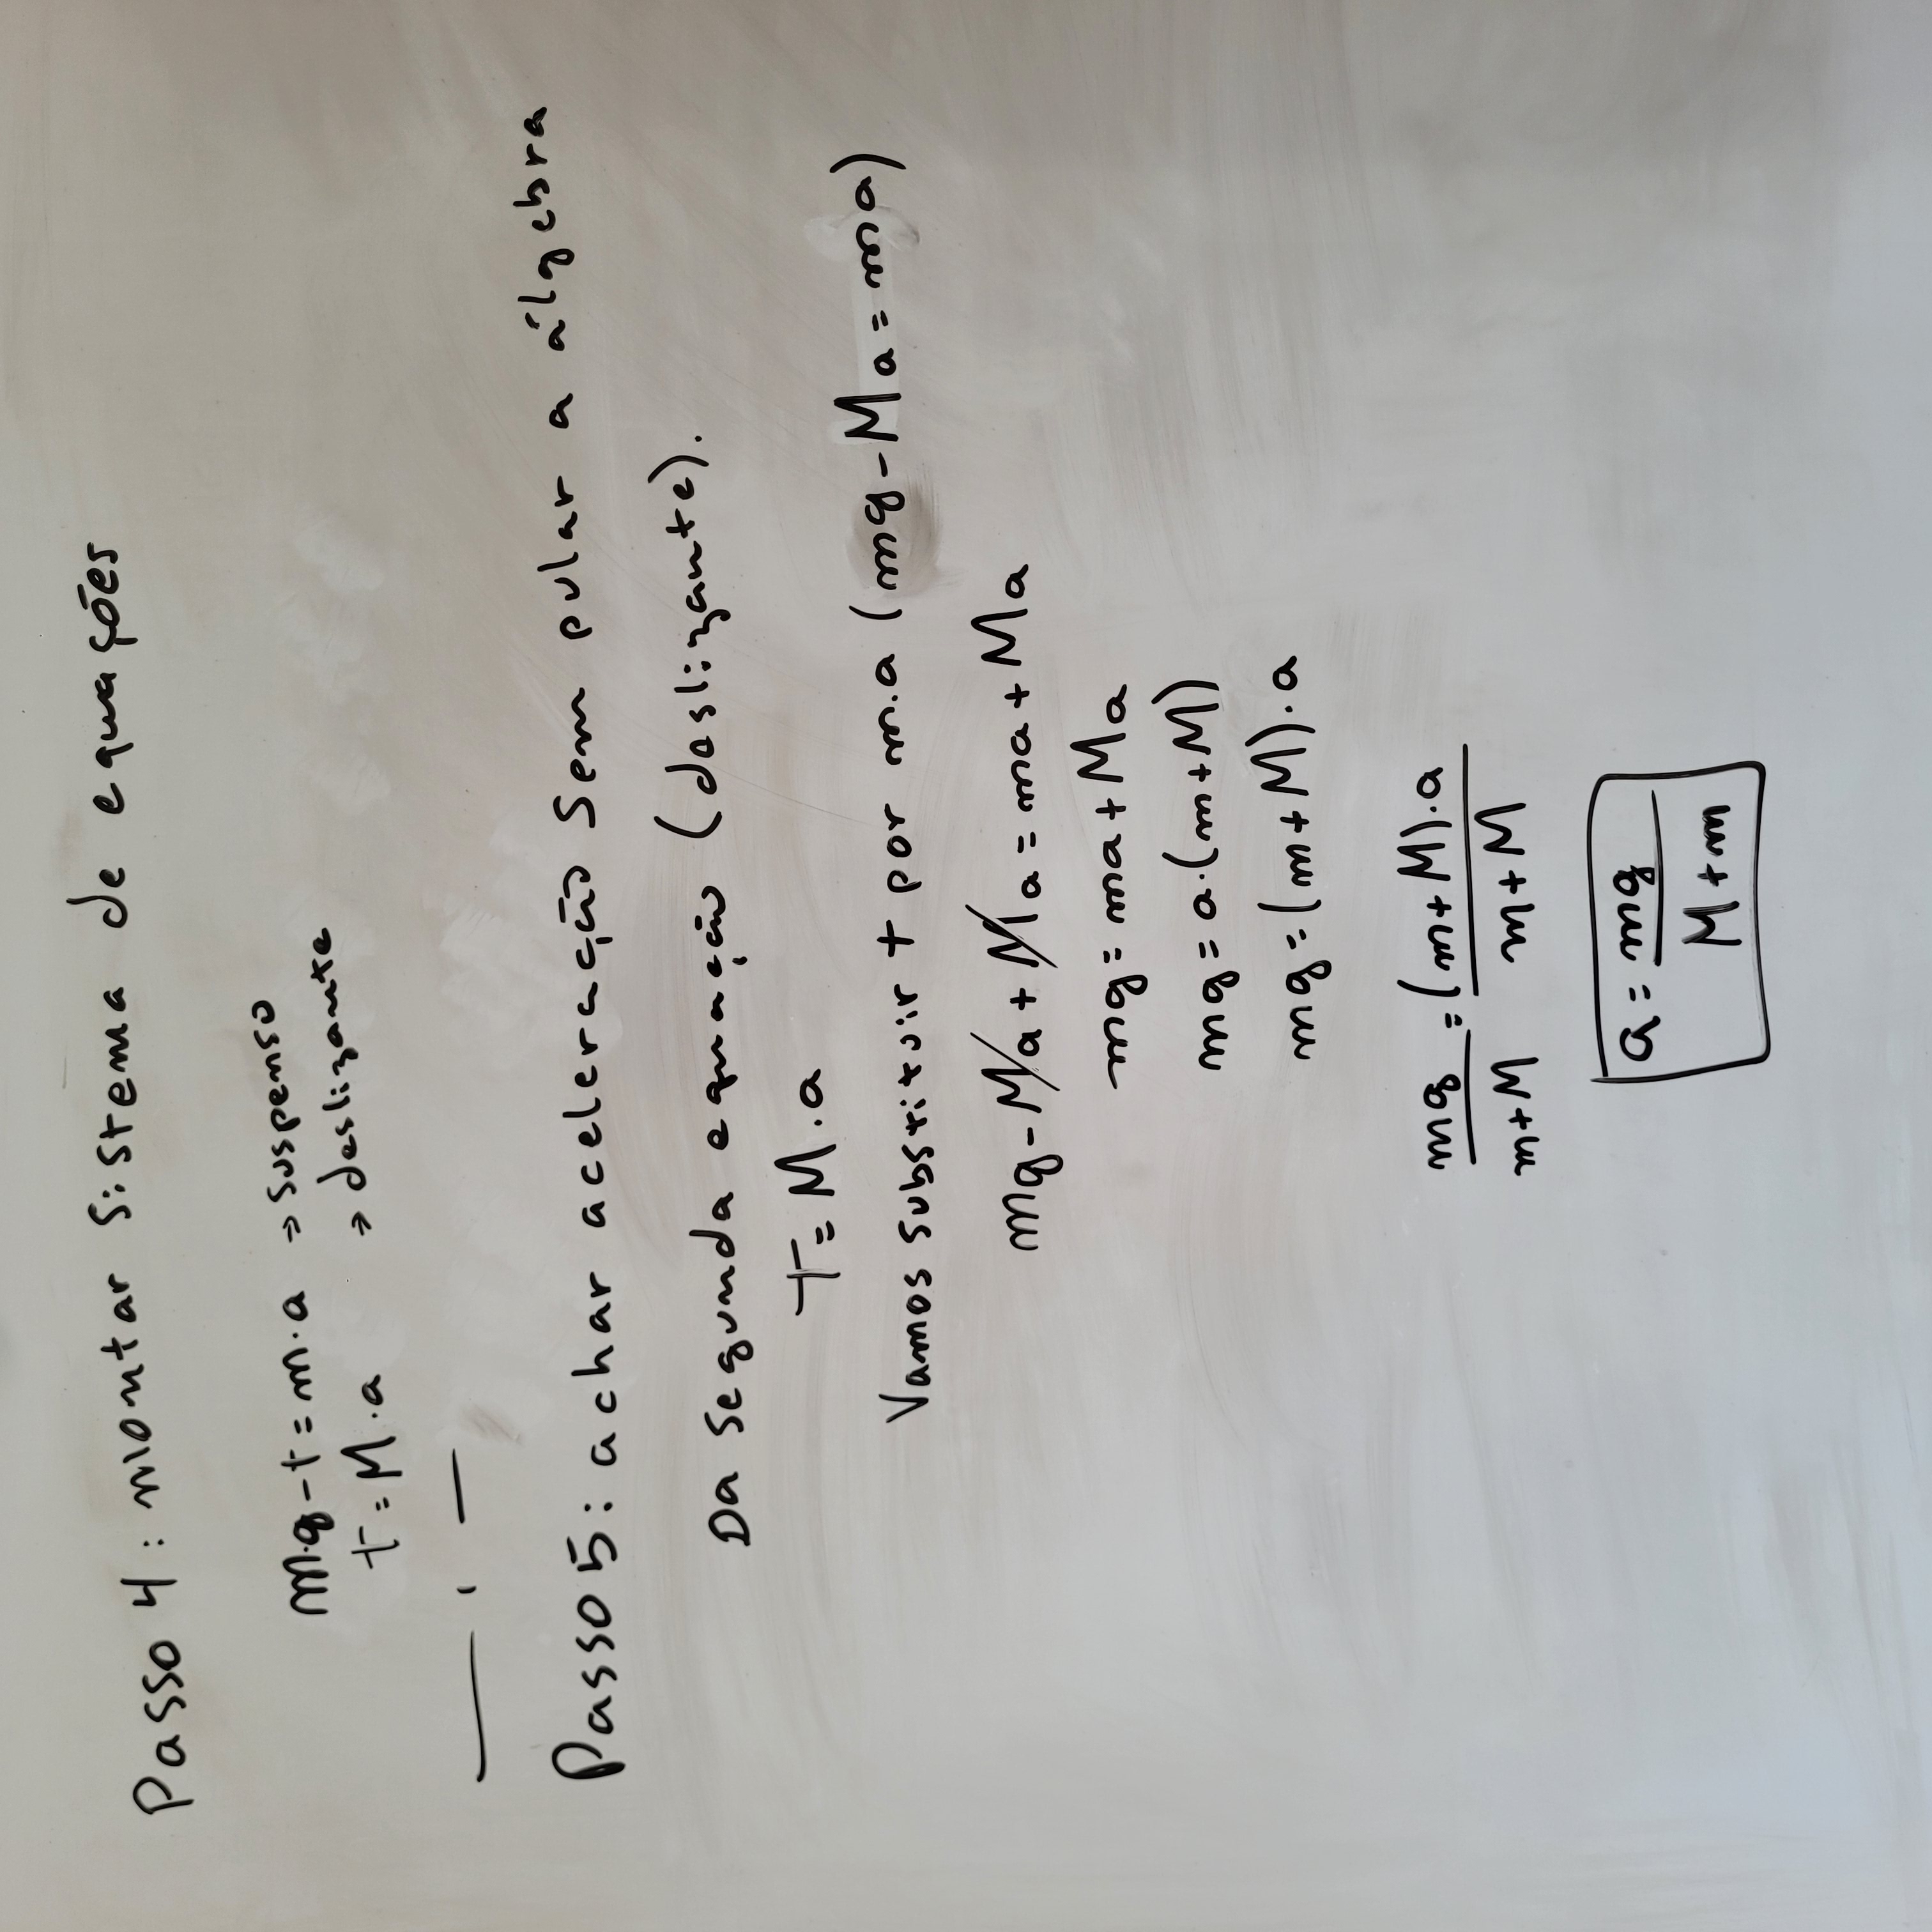 Passo 4: montar sistema de equações
m.g - t = m.a => suspenso
t = M.a => deslizante
Passo 5: achar aceleração sem pular a álgebra
Da segunda equação (deslizante).
T = M.a
Vamos substituir t por m.a (mg - Ma = ma)
mg - Ma + Ma = ma + Ma
mg = ma + Ma
mg = a.(m+M)
mg = (m+M).a
mg/m+M = (m+M).a/m+M
a = mg/M+m